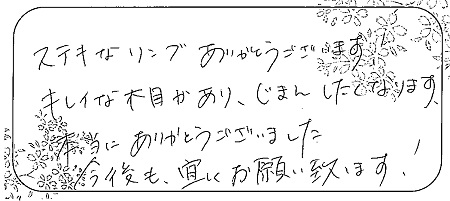 ステキなリング ありがとうございます!
キレイな木目があり、じまんしたくなります。
本当にありがとうございました
今後も、宜しくお願い致します!